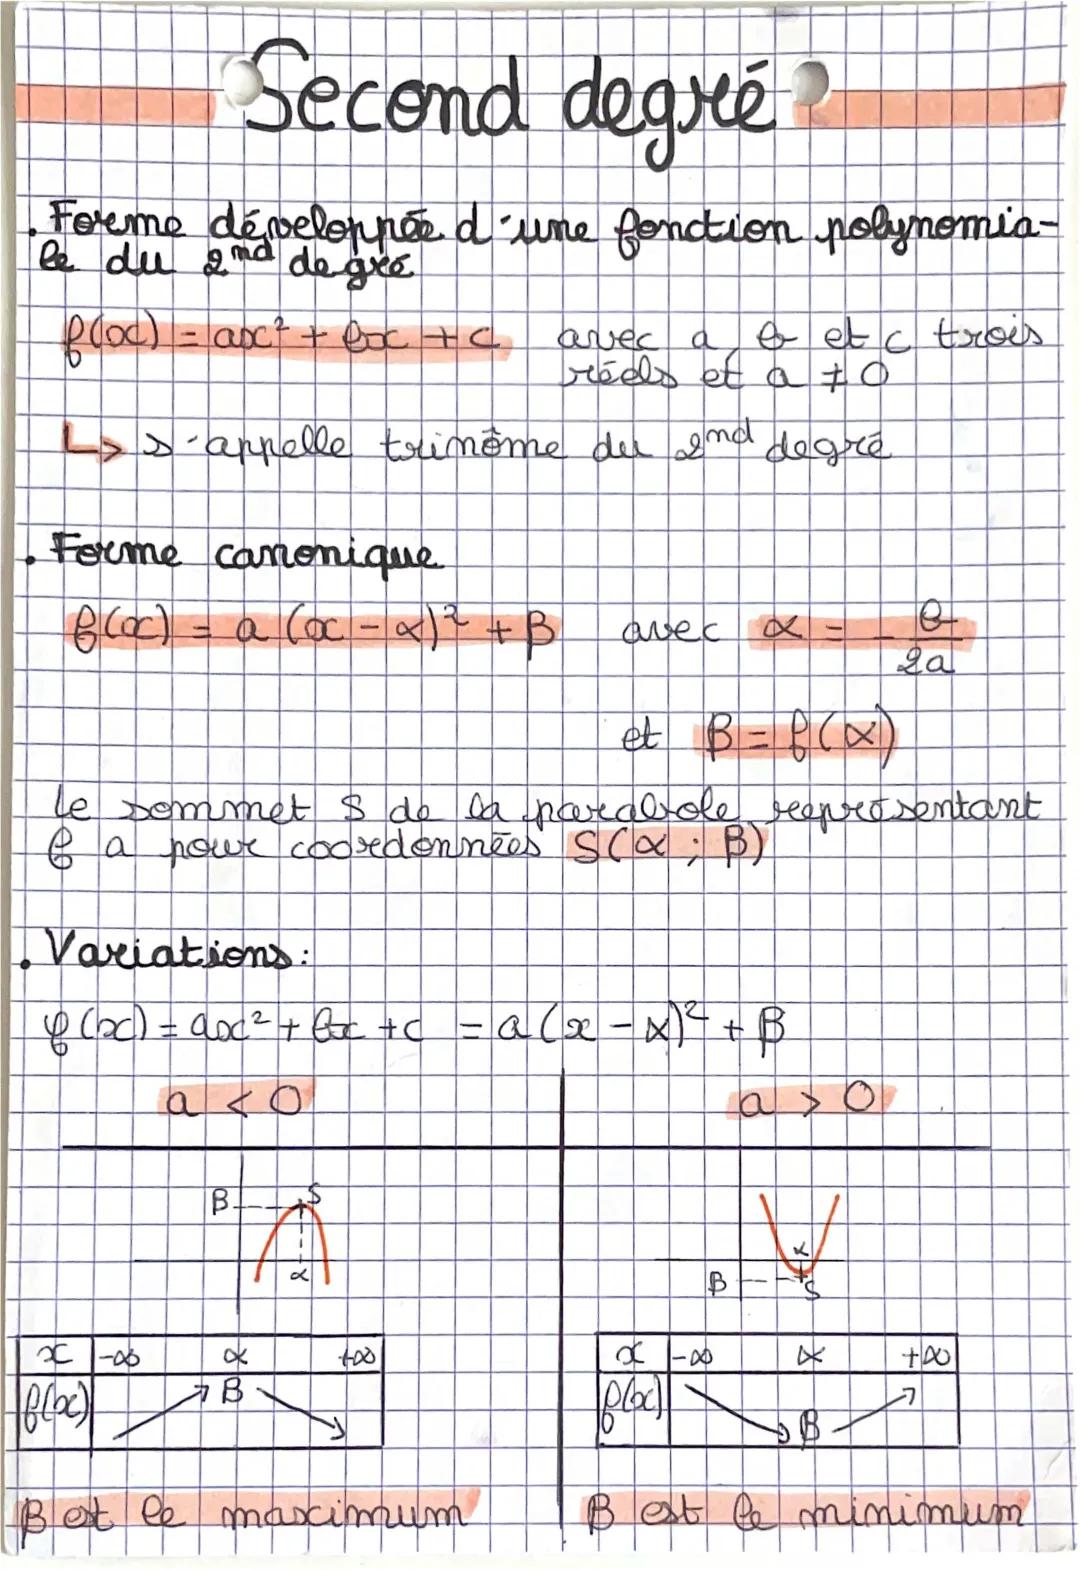 Second degré
. Forme développée d'une fonction polynomia-
le du 2nd degré
f(x) = ax² + bx + c avec a, b et c trois
réels et a ≠ 0
↳ s'appelle trinôme du 2nd degré
. Forme canonique
f(x) = a (x - α)² + β avec α = - b/2a
et β = f(α)
le sommet S de la parabole représentant
f a pour coordonnées S(α ; β)
. Variations :
f(x) = ax² + bx + c = a(x - α)² + β
a < 0 a > 0
β S
α
α
β S
x -∞ α +∞
f(x) ↗ β ↘
x -∞ α +∞
f(x) ↘ β ↗
β est le maximum
β est le minimum